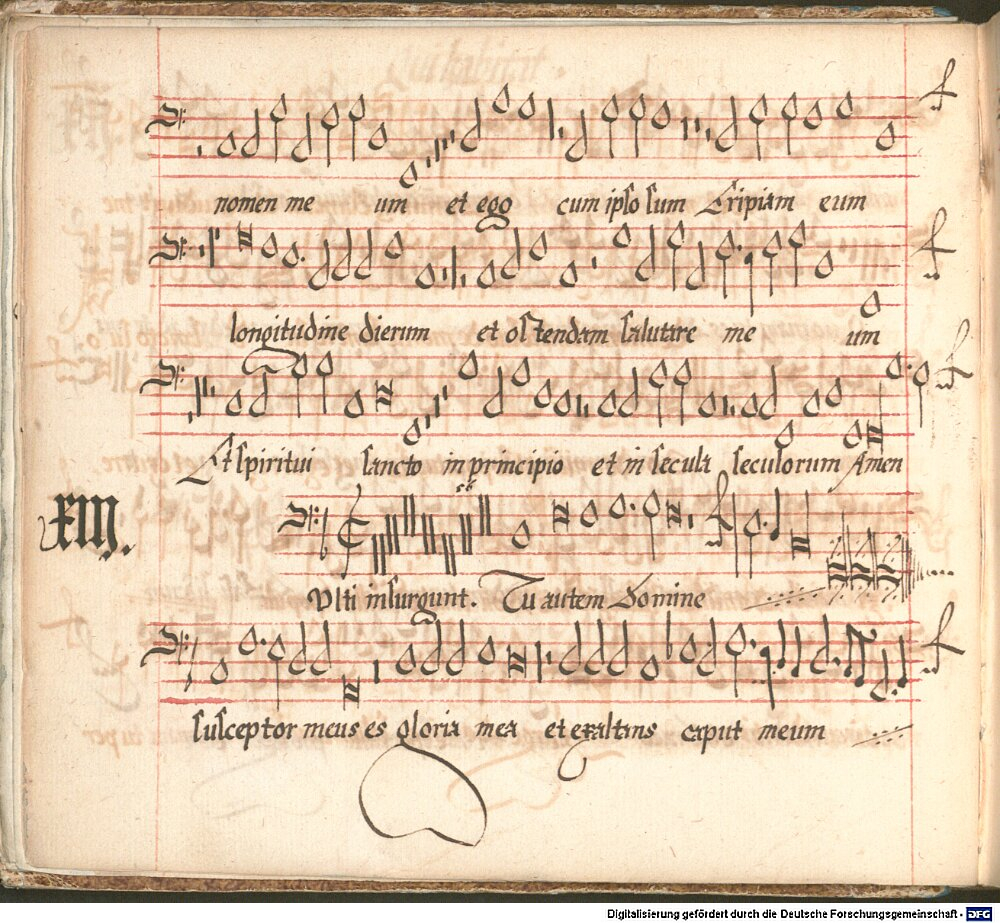 nomen me um et ego cum ipso sum Eripiam eum
longitudine dierum et ostendam salutare me um
Et spiritui sancto in principio et in secula seculorum Amen
XIII.
Ulti insurgunt. Tu autem Domine
susceptor meus es gloria mea et exaltans caput meum
Digitalisierung gefördert durch die Deutsche Forschungsgemeinschaft - DFG